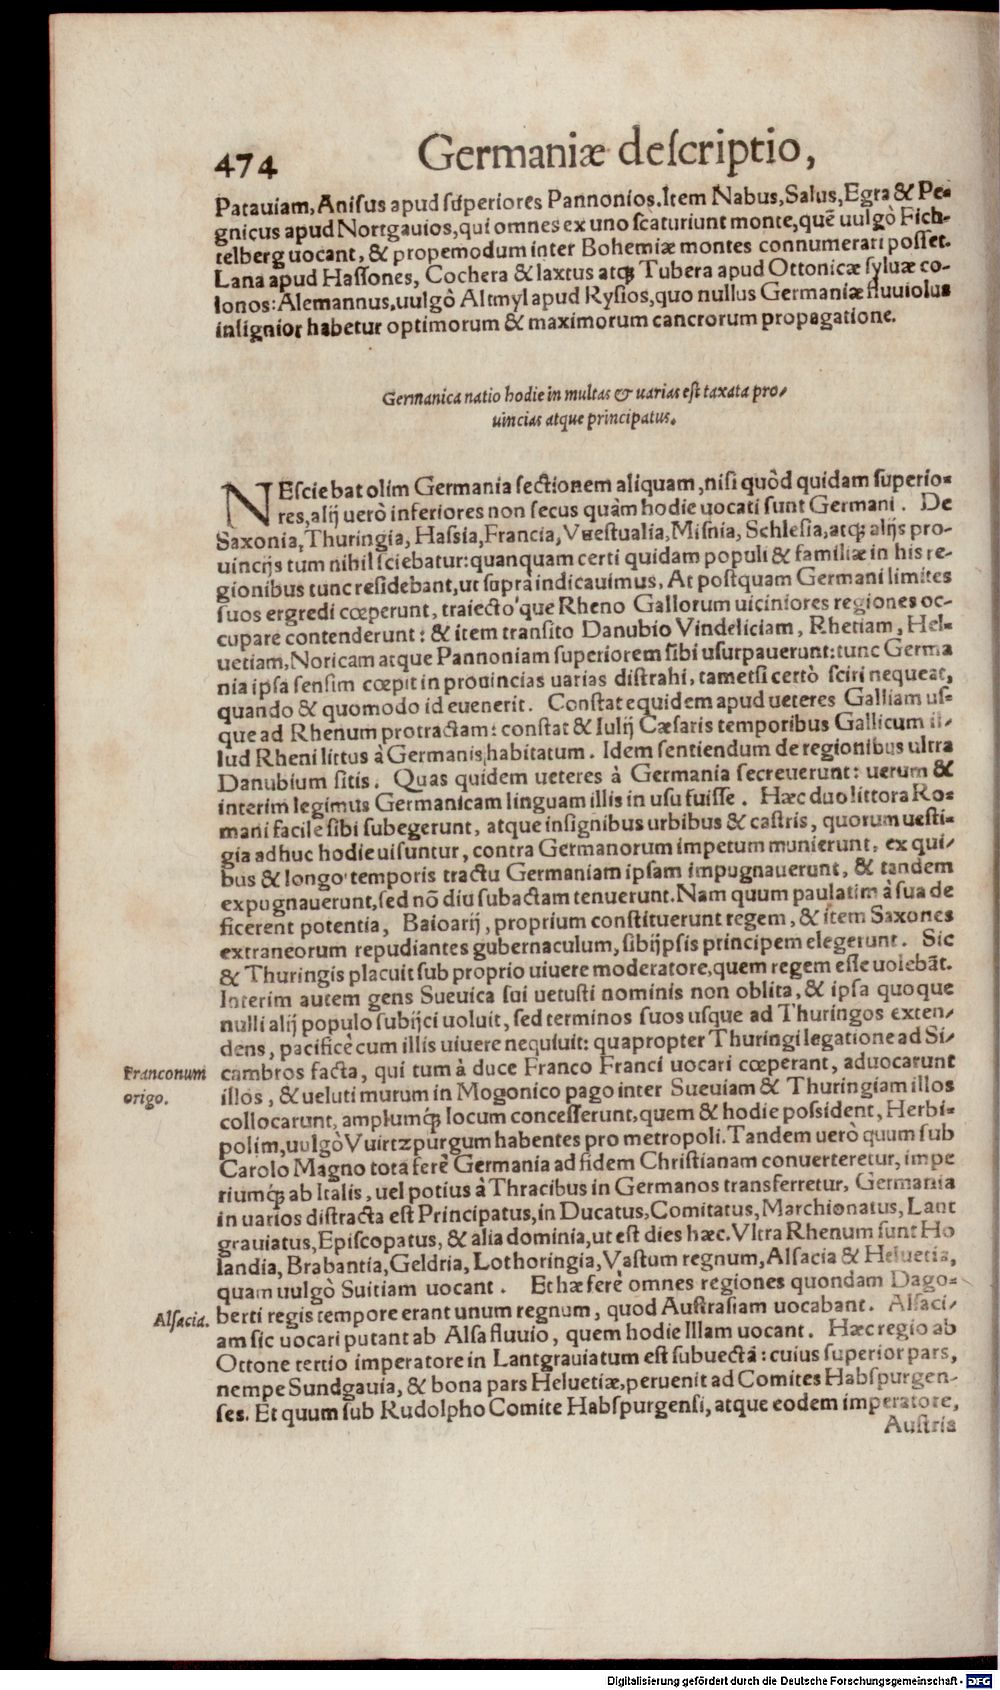 474 Germaniæ deſcriptio,
Patauiam, Aniſus apud ſuperiores Pannonios. Item Nabus, Salus, Egra & Pe-
gnicus apud Nortgauios, qui omnes ex uno ſcaturiunt monte, quẽ uulgò Fich-
telberg uocant, & propemodum inter Bohemiæ montes connumerari poſſet.
Lana apud Haſſones, Cochera & Iaxtus atq; Tubera apud Ottonicæ ſyluæ co-
lonos: Alemannus, uulgô Altmyl apud Ryſios, quo nullus Germaniæ fluuiolus
inſignior habetur optimorum & maximorum cancrorum propagatione.
Germanica natio hodie in multas & uarias eſt taxata pro-
uincias atque principatus.
NEſciebat olim Germania ſectionem aliquam, niſi quòd quidam ſuperio-
res, alij uerò inferiores non ſecus quàm hodie uocati ſunt Germani. De
Saxonia, Thuringia, Haſſia, Francia, Vueſtualia, Miſnia, Schleſia, atq; alijs pro-
uincijs tum nihil ſciebatur: quanquam certi quidam populi & familiæ in his re-
gionibus tunc reſidebant, ut ſuprà indicauimus. At poſtquam Germani limites
ſuos ergredi cœperunt, traiecto'que Rheno Gallorum uiciniores regiones oc-
cupare contenderunt: & item tranſito Danubio Vindeliciam, Rhetiam, Hel-
uetiam, Noricam atque Pannoniam ſuperiorem ſibi uſurpauerunt: tunc Germa
nia ipſa ſenſim cœpit in prouincias uarias diſtrahi, tametſi certò ſciri nequeat,
quando & quomodo id euenerit. Conſtat equidem apud ueteres Galliam uſ-
que ad Rhenum protractam: conſtat & Iulij Cæſaris temporibus Gallicum il-
lud Rheni littus à Germanis habitatum. Idem ſentiendum de regionibus ultra
Danubium ſitis. Quas quidem ueteres à Germania ſecreuerunt: uerum &
interim legimus Germanicam linguam illis in uſu fuiſſe. Hæc duo littora Ro-
mani facile ſibi ſubegerunt, atque inſignibus urbibus & caſtris, quorum ueſti-
gia adhuc hodie uiſuntur, contra Germanorum impetum munierunt, ex qui-
bus & longo temporis tractu Germaniam ipſam impugnauerunt, & tandem
expugnauerunt, ſed nõ diu ſubactam tenuerunt. Nam quum paulatim à ſua de
ficerent potentia, Baioarij, proprium conſtituerunt regem, & item Saxones
extraneorum repudiantes gubernaculum, ſibijpſis principem elegerunt. Sic
& Thuringis placuit ſub proprio uiuere moderatore, quem regem eſſe uolebãt.
Interim autem gens Sueuica ſui uetuſti nominis non oblita, & ipſa quoque
nulli alij populo ſubijci uoluit, ſed terminos ſuos uſque ad Thuringos exten-
dens, pacificè cum illis uiuere nequiuit: quapropter Thuringi legatione ad Si-
Franconum origo.
cambros facta, qui tum à duce Franco Franci uocari cœperant, aduocarunt
illos, & ueluti murum in Mogonico pago inter Sueuiam & Thuringiam illos
collocarunt, amplumq́; locum conceſſerunt, quem & hodie poſsident, Herbi-
polim, uulgò Vuirtzpurgum habentes pro metropoli. Tandem uerò quum ſub
Carolo Magno tota ferè Germania ad fidem Chriſtianam conuerteretur, impe
riumq́; ab Italis, uel potius à Thracibus in Germanos transferretur, Germania
in uarios diſtracta eſt Principatus, in Ducatus, Comitatus, Marchionatus, Lant
grauiatus, Epiſcopatus, & alia dominia, ut eſt dies hæc. Vltra Rhenum ſunt Ho
landia, Brabantia, Geldria, Lothoringia, Vaſtum regnum, Alſacia & Heluetia,
quam uulgò Suitiam uocant. Et hæ ferè omnes regiones quondam Dago-
Alſacia.
berti regis tempore erant unum regnum, quod Auſtraſiam uocabant. Alſaci-
am ſic uocari putant ab Alſa fluuio, quem hodie Illam uocant. Hæc regio ab
Ottone tertio imperatore in Lantgrauiatum eſt ſubuectâ: cuius ſuperior pars,
nempe Sundgauia, & bona pars Heluetiæ, peruenit ad Comites Habſpurgen-
ſes. Et quum ſub Rudolpho Comite Habſpurgenſi, atque eodem imperatore,
Auſtria
Digitalisierung gefördert durch die Deutsche Forschungsgemeinschaft - DFG